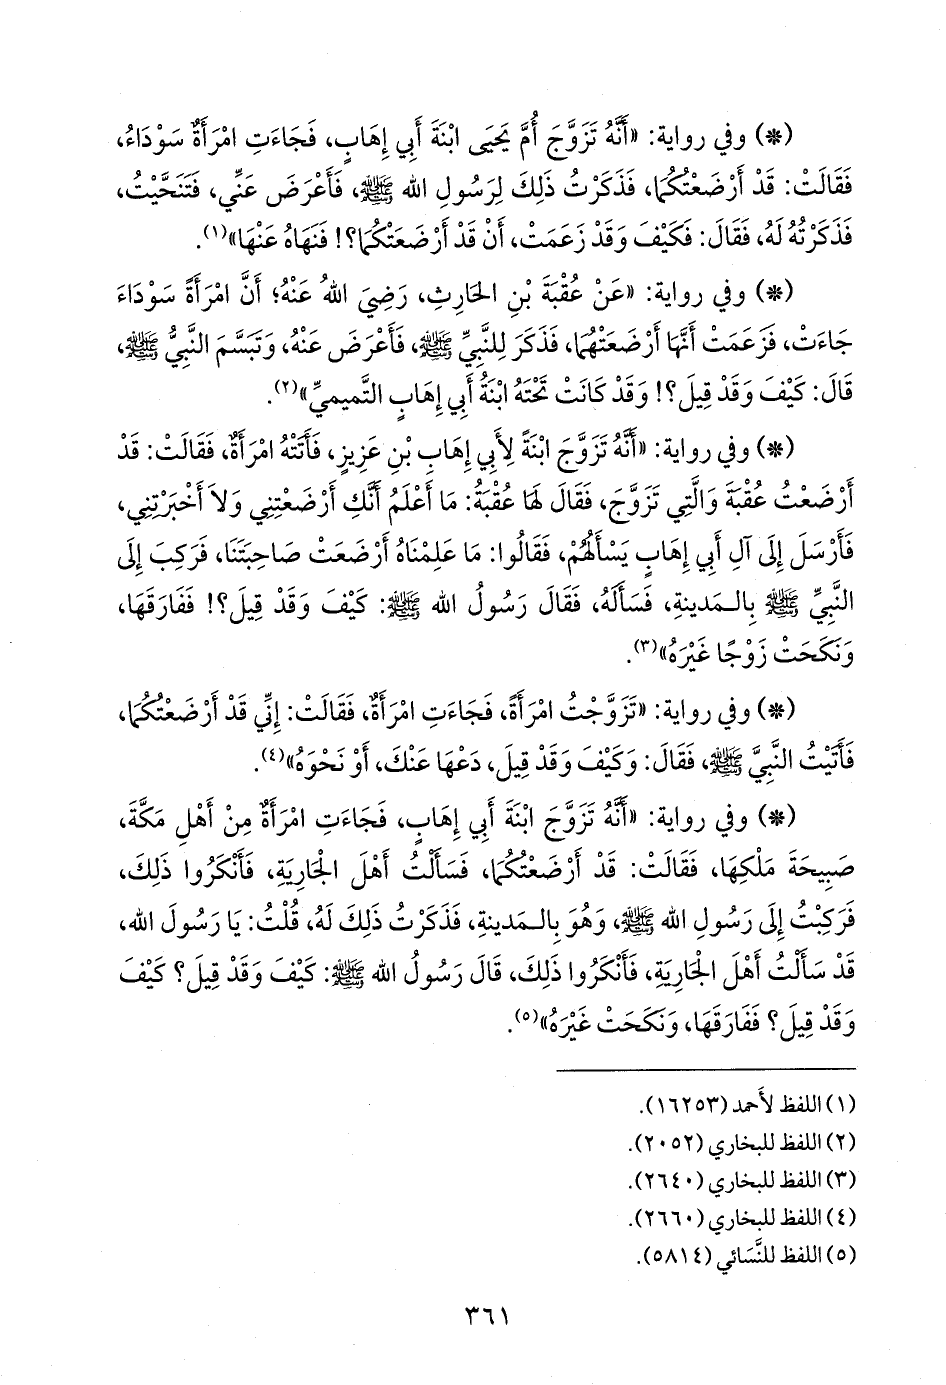 (*) وفي رواية: «أَنَّهُ تَزَوَّجَ أُمَّ يَحيَى ابْنَةَ أَبِي إِهَابٍ، فَجَاءَتِ امْرَأَةٌ سَوْدَاءُ،
فَقَالَتْ: قَدْ أَرْضَعْتُكُمَا، فَذَكَرْتُ ذَلِكَ لِرَسُولِ الله ﷺ، فَأَعْرَضَ عَنِّي، فَتَنَحَّيْتُ،
فَذَكَرْتُهُ لَهُ، فَقَالَ: فَكَيْفَ وَقَدْ زَعَمَتْ، أَنْ قَدْ أَرْضَعَتْكُمَا؟! فَنَهَاهُ عَنْهَا»(١).
(*) وفي رواية: «عَنْ عُقْبَةَ بْنِ الحَارِثِ، رَضِيَ اللهُ عَنْهُ؛ أَنَّ امْرَأَةً سَوْدَاءَ
جَاءَتْ، فَزَعَمَتْ أَنَّهَا أَرْضَعَتْهُمَا، فَذَكَرَ لِلنَّبِيِّ ﷺ، فَأَعْرَضَ عَنْهُ، وَتَبَسَّمَ النَّبِيُّ ﷺ،
قَالَ: كَيْفَ وَقَدْ قِيلَ؟! وَقَدْ كَانَتْ تَحْتَهُ ابْنَةُ أَبِي إِهَابٍ التَّمِيمِيِّ»(٢).
(*) وفي رواية: «أَنَّهُ تَزَوَّجَ ابْنَةً لِأَبِي إِهَابِ بْنِ عَزِيزٍ، فَأَتَتْهُ امْرَأَةٌ، فَقَالَتْ: قَدْ
أَرْضَعْتُ عُقْبَةَ وَالَّتِي تَزَوَّجَ، فَقَالَ لَهَا عُقْبَةُ: مَا أَعْلَمُ أَنَّكِ أَرْضَعْتِنِي وَلاَ أَخْبَرْتِنِي،
فَأَرْسَلَ إِلَى آلِ أَبِي إِهَابٍ يَسْأَلُهُمْ، فَقَالُوا: مَا عَلِمْنَاهُ أَرْضَعَتْ صَاحِبَتَنَا، فَرَكِبَ إِلَى
النَّبِيِّ ﷺ بِالـمَدِينةِ، فَسَأَلَهُ، فَقَالَ رَسُولُ الله ﷺ: كَيْفَ وَقَدْ قِيلَ؟! فَفَارَقَهَا،
وَنَكَحَتْ زَوْجًا غَيْرَهُ»(٣).
(*) وفي رواية: «تَزَوَّجْتُ امْرَأَةً، فَجَاءَتِ امْرَأَةٌ، فَقَالَتْ: إِنِّي قَدْ أَرْضَعْتُكُمَا،
فَأَتَيْتُ النَّبِيَّ ﷺ، فَقَالَ: وَكَيْفَ وَقَدْ قِيلَ، دَعْهَا عَنْكَ، أَوْ نَحْوَهُ»(٤).
(*) وفي رواية: «أَنَّهُ تَزَوَّجَ ابْنَةَ أَبِي إِهَابٍ، فَجَاءَتِ امْرَأَةٌ مِنْ أَهْلِ مَكَّةَ،
صَبِيحَةَ مَلْكِهَا، فَقَالَتْ: قَدْ أَرْضَعْتُكُمَا، فَسَأَلْتُ أَهْلَ الجَارِيَةِ، فَأَنْكَرُوا ذَلِكَ،
فَرَكِبْتُ إِلَى رَسُولِ الله ﷺ، وَهُوَ بِالـمَدِينةِ، فَذَكَرْتُ ذَلِكَ لَهُ، قُلْتُ: يَا رَسُولَ الله،
قَدْ سَأَلْتُ أَهْلَ الجَارِيَةِ، فَأَنْكَرُوا ذَلِكَ، قَالَ رَسُولُ الله ﷺ: كَيْفَ وَقَدْ قِيلَ؟ كَيْفَ
وَقَدْ قِيلَ؟ فَفَارَقَهَا، وَنَكَحَتْ غَيْرَهُ»(٥).
(١) اللفظ لأَحمد (١٦٢٥٣).
(٢) اللفظ للبخاري (٢٠٥٢).
(٣) اللفظ للبخاري (٢٦٤٠).
(٤) اللفظ للبخاري (٢٦٦٠).
(٥) اللفظ للنَّسَائي (٥٨١٤).
٣٦١